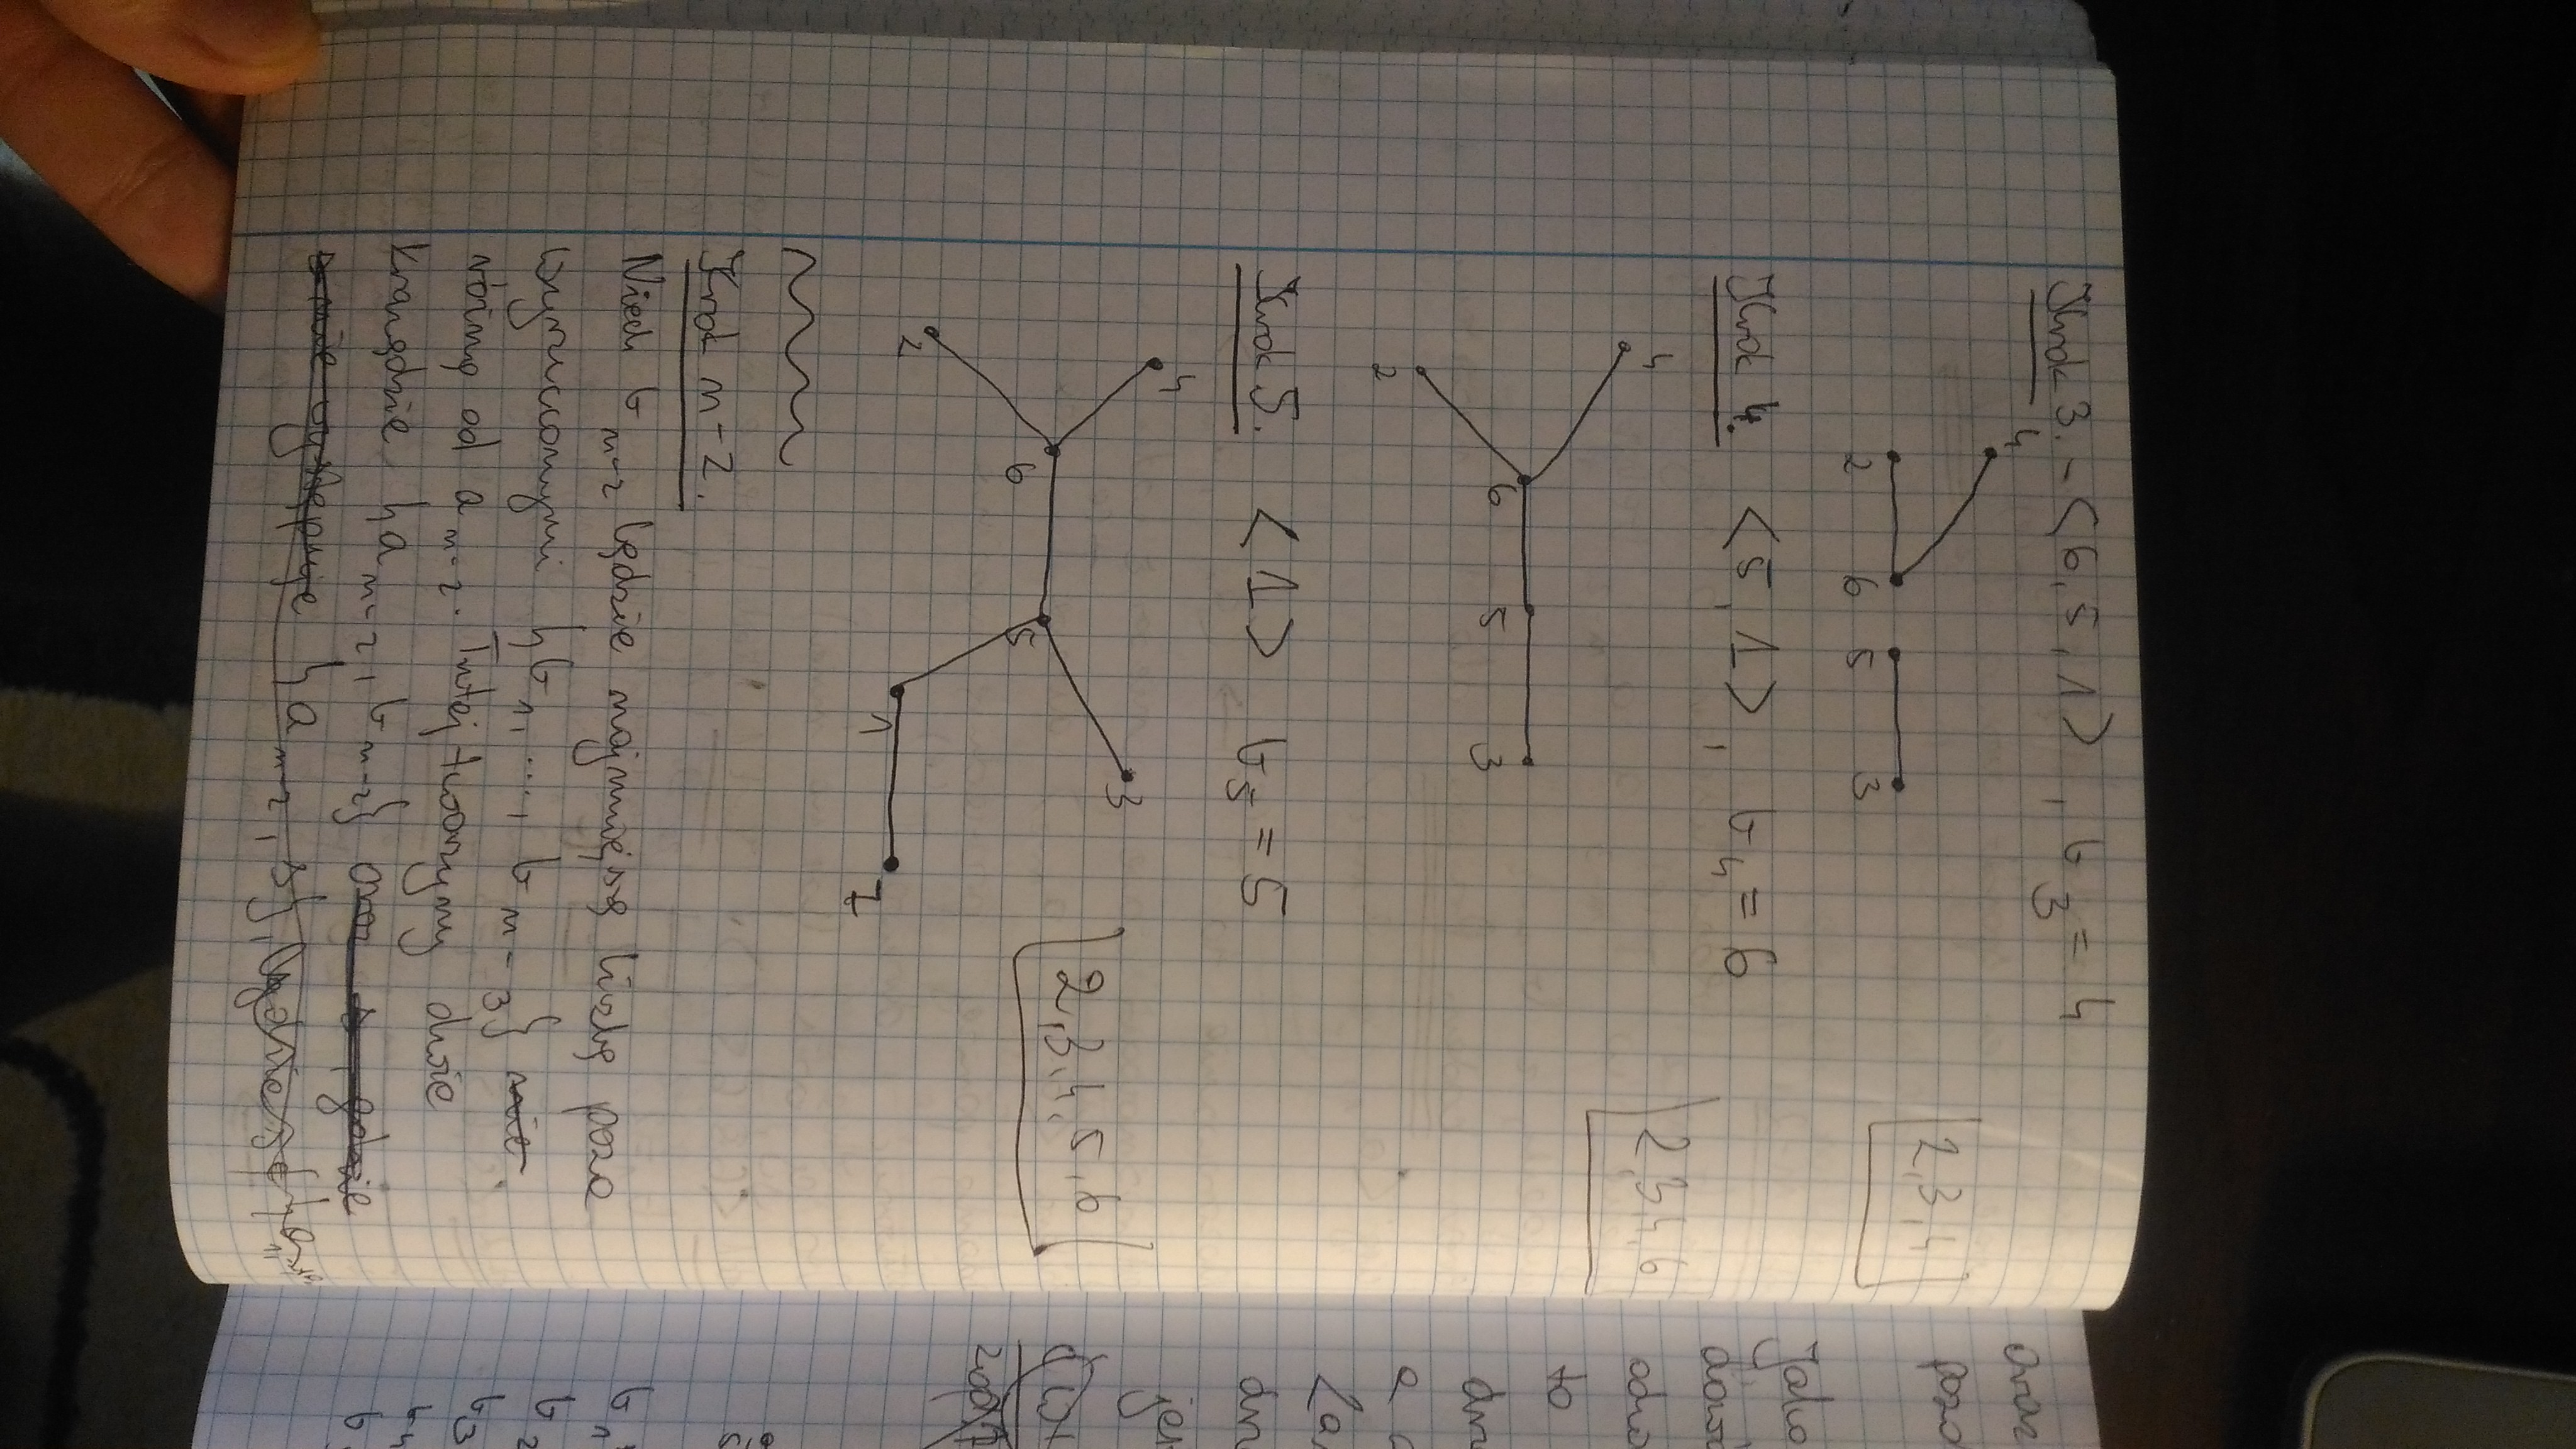 Krok 3. - <6, 5, 1> , b3 = 4
4
2 6 5 3
2, 3, 4
Krok 4. <5, 1> , b4 = 6
2, 3, 4, 6
4
6 5 3
2
Krok 5. <1> b5 = 5
4
3
2, 3, 4, 5, 6
6 5
2
1 7
Krok n-2.
Niech b n-2 będzie najmniejszą liczbą poza
wyrzuconymi {b1, ..., b n-3} nie
różną od a n-2. Tutaj tworzymy dwie
krawędzie {a n-2, b n-2} oraz s, gdzie
s nie występuje {a n-2, s},
oraz
pozo
Jako
dowo
odwo
to
drz
jes
b1
b2
b3
b4
b